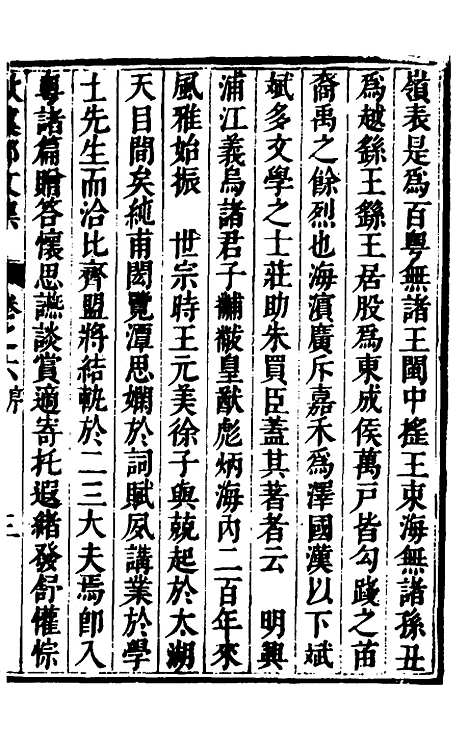 嶺表是爲百粤無諸王閩中搖王東海無諸孫丑
爲越繇王繇王居股爲東成侯萬戸皆勾踐之苗
裔禹之餘烈也海濱廣斥嘉禾爲澤國漢以下斌
斌多文學之士莊助朱買臣蓋其著者云　明興
浦江義烏諸君子黼黻皇猷彪炳海内二百年來
風雅始振　世宗時王元美徐子與兢起於太湖
天目間矣純甫閎覽潭思嫻於詞賦夙講業於學
士先生而洽比齊盟將結軌於二三大夫焉卽入
粤諸篇贈答懷思讌談賞適寄托遐緒發舒懽悰
文集 卷之六序 三